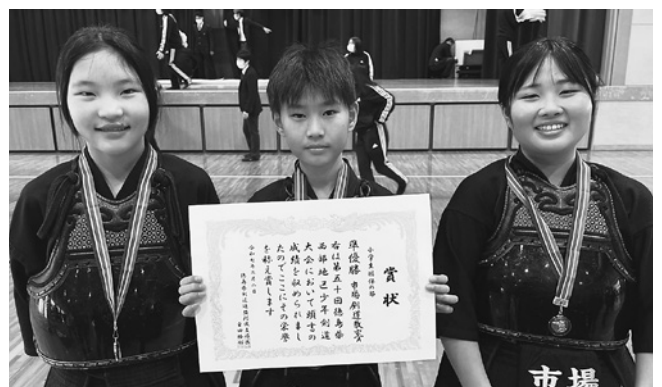 賞状
小学生団体の部
準優勝 市場剣道教室
右は第五十回徳島県
西部地区少年剣道
大会において頭書の
成績を収められまし
たのでここにその栄誉
を称え賞します
市場